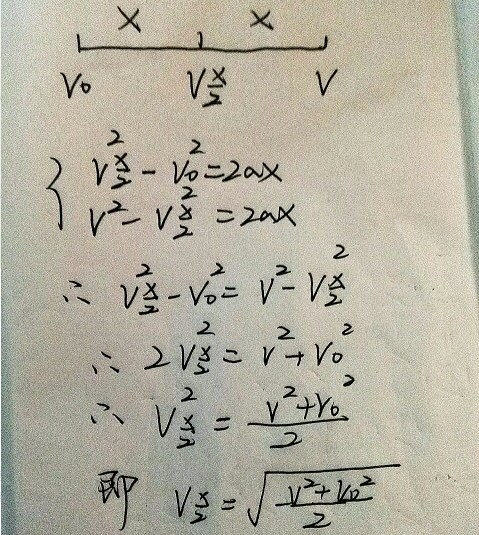 x x
v₀ v_{x/2} v
{ v_{x/2}² - v₀² = 2ax
v² - v_{x/2}² = 2ax
∴ v_{x/2}² - v₀² = v² - v_{x/2}²
∴ 2v_{x/2}² = v² + v₀²
∴ v_{x/2}² = (v² + v₀²)/2
即 v_{x/2} = √((v² + v₀²)/2)